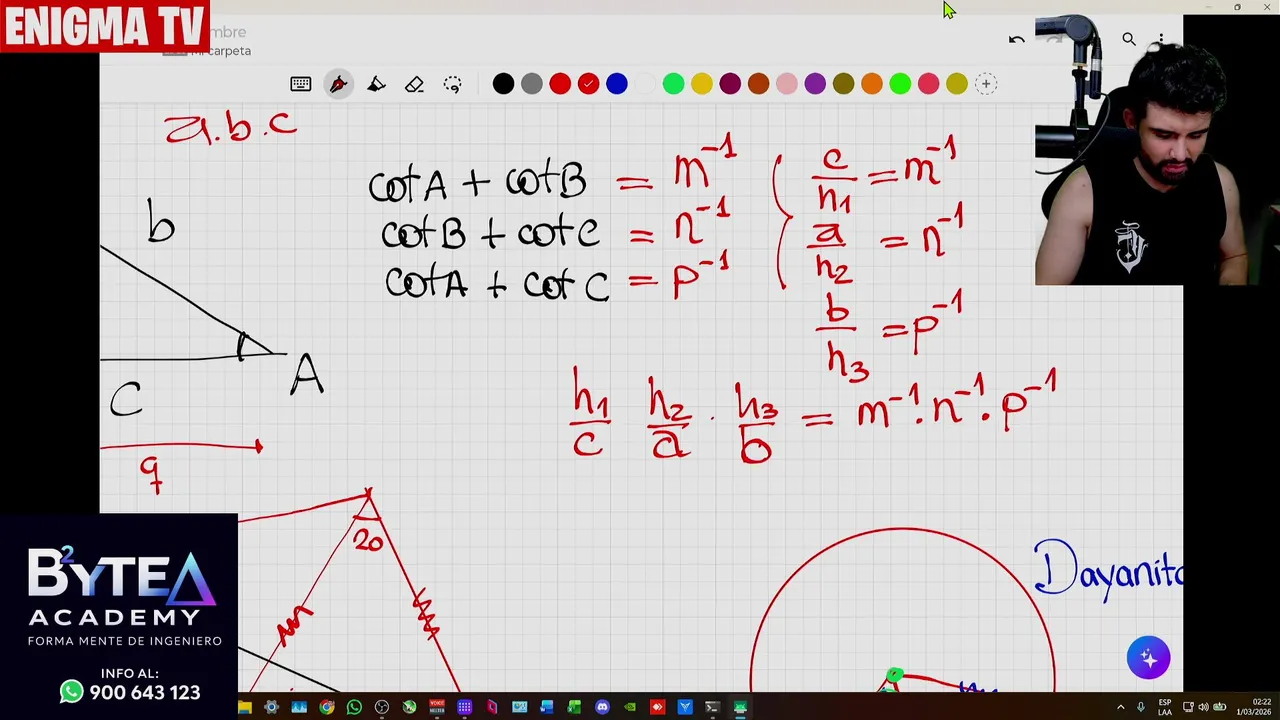 ENIGMA TV
mbre
Mi carpeta
a.b.c
cotA + cotB = m⁻¹
cotB + cotC = n⁻¹
cotA + cotC = p⁻¹
c/h₁ = m⁻¹
a/h₂ = n⁻¹
b/h₃ = p⁻¹
b
A
C
q
h₁/c h₂/a · h₃/b = m⁻¹·n⁻¹·p⁻¹
20
Dayanita
B²YTE
ACADEMY
FORMA MENTE DE INGENIERO
INFO AL:
900 643 123
ESP
LAA
02:22
1/03/2026